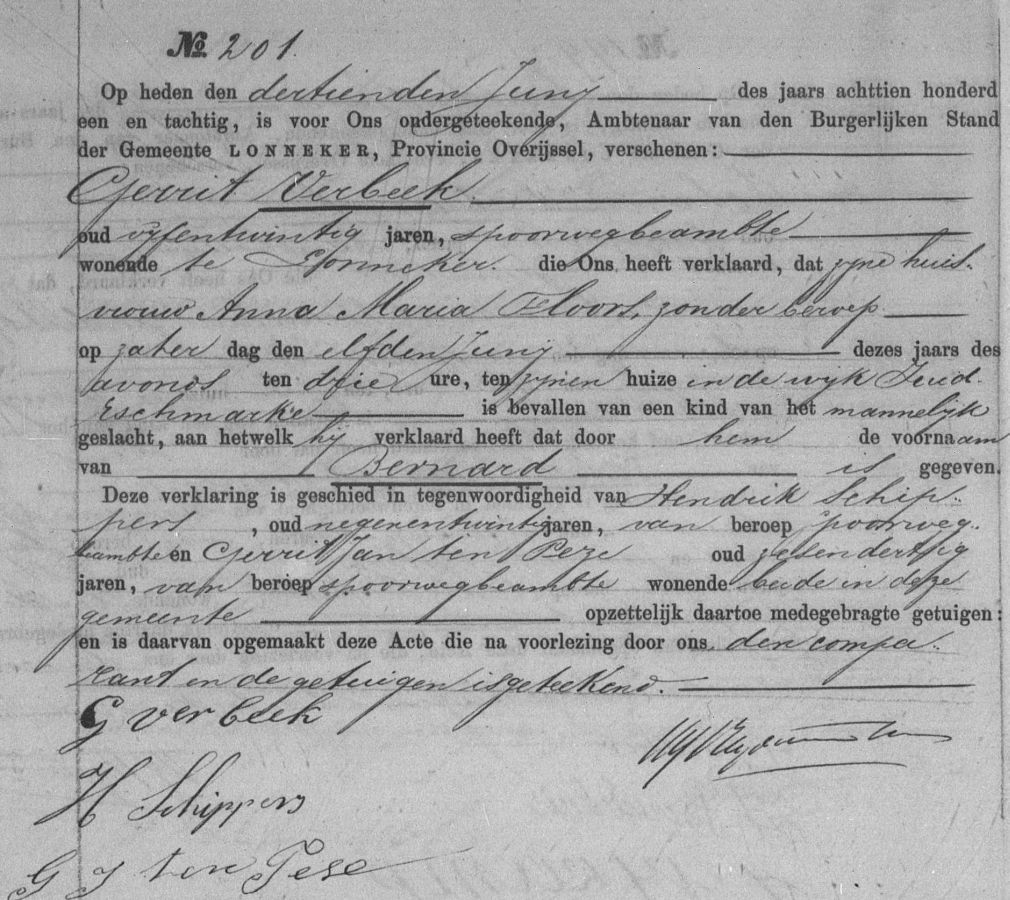 № 201.
Op heden den dertienden Juny des jaars achttien honderd
een en tachtig, is voor Ons ondergeteekende, Ambtenaar van den Burgerlijken Stand
der Gemeente LONNEKER, Provincie Overijssel, verschenen:
Gerrit Verbeek.
oud vyfentwintig jaren, spoorwegbeambte
wonende te Lonneker. die Ons heeft verklaard, dat zyne huis-
vrouw Anna Maria Floors, zonder beroep
op zater dag den elfden Juny dezes jaars des
avonds ten drie ure, ten zynen huize in de wyk Zuid-
Eschmarke is bevallen van een kind van het mannelyk
geslacht, aan hetwelk hy verklaard heeft dat door hem de voornaam
van Bernard is gegeven.
Deze verklaring is geschied in tegenwoordigheid van Hendrik Schip-
pers, oud negenentwintig jaren, van beroep spoorweg-
beambte en Gerrit Jan ten Peze oud zesendertig
jaren, van beroep spoorwegbeambte wonende beide in deze
gemeente opzettelijk daartoe medegebragte getuigen:
en is daarvan opgemaakt deze Acte die na voorlezing door ons den compa-
rant en de getuigen is geteekend.
G Verbeek
H Schippers
G J ten Pese